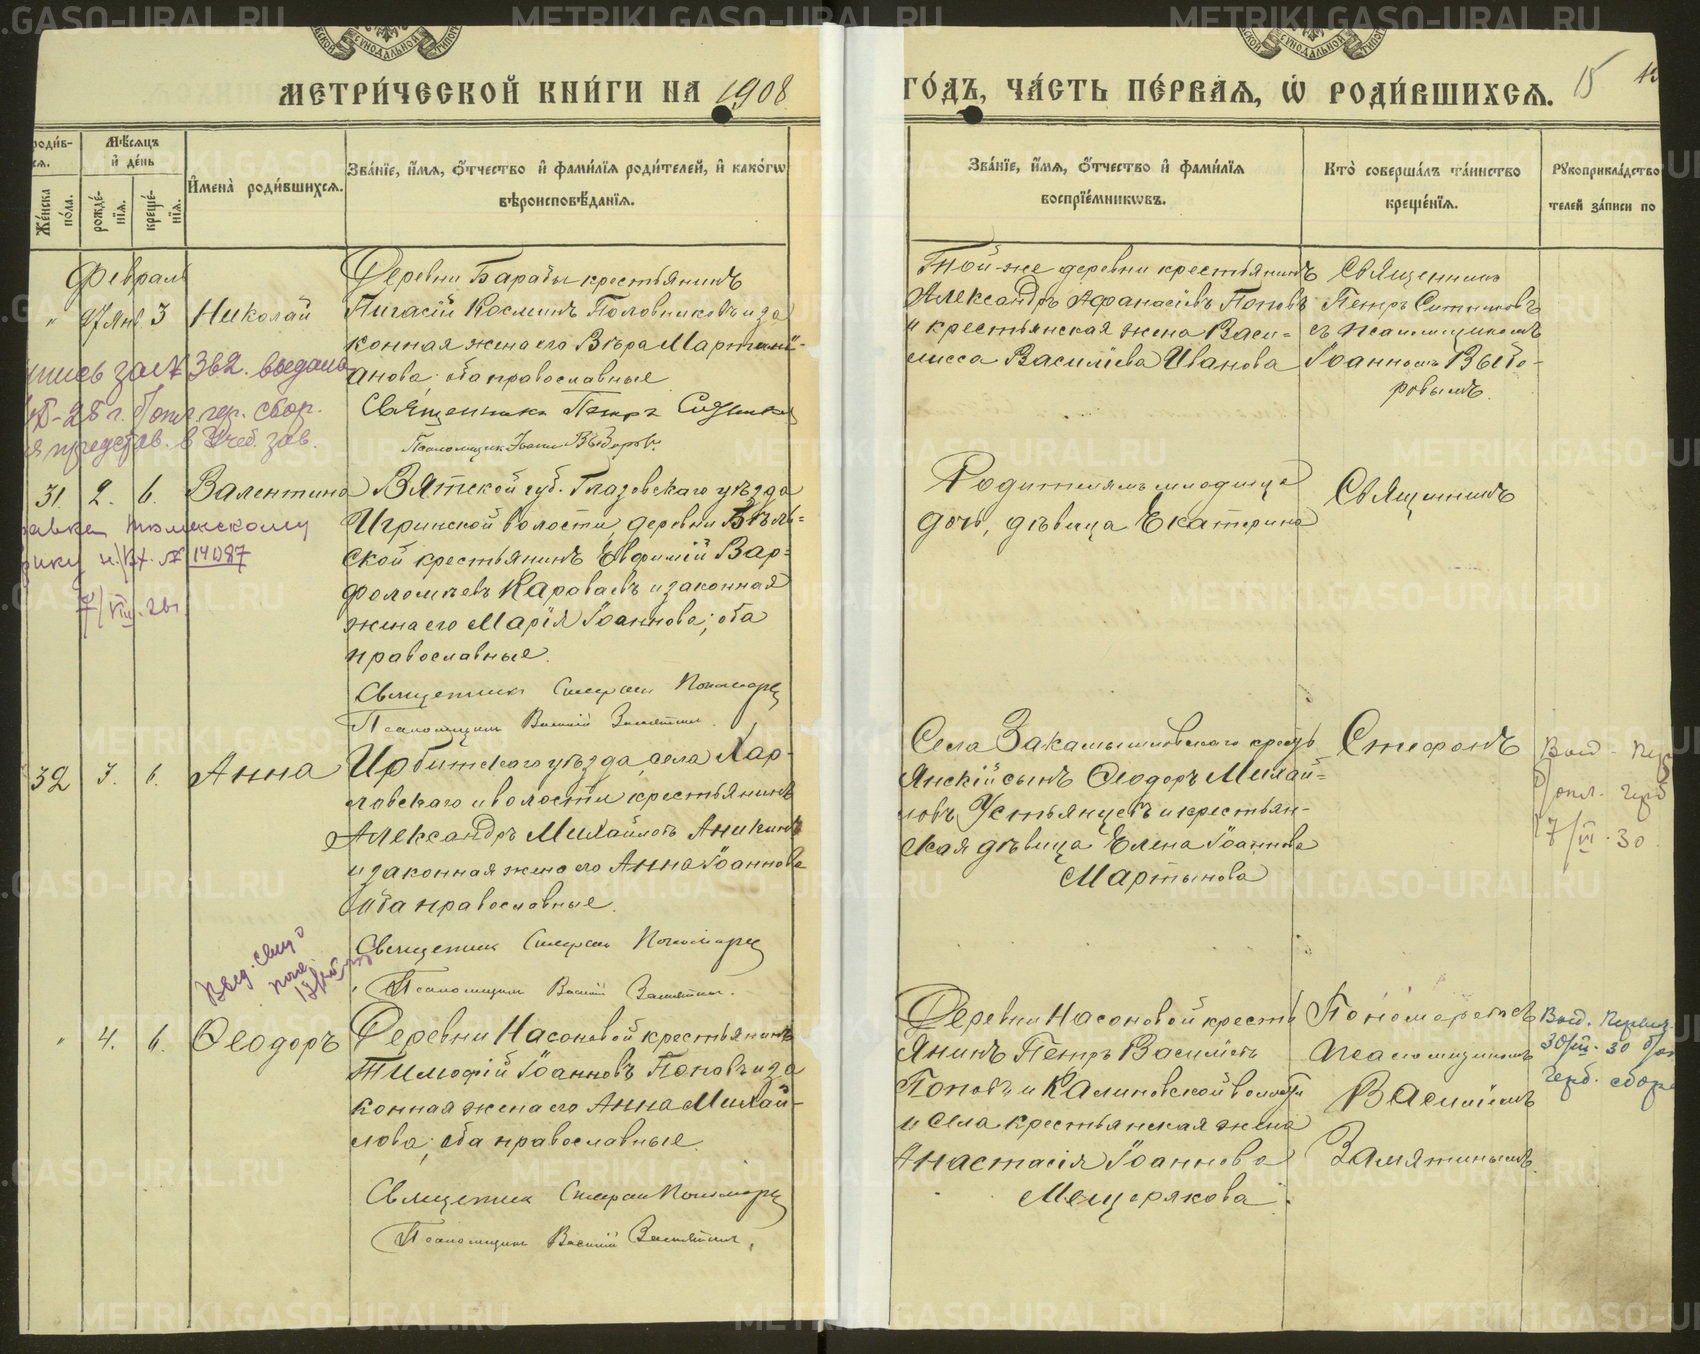 МЕТРИ́ЧЕСКОЙ КНИ́ГИ НА 1908
ГО́ДЪ, ЧА́СТЬ ПЕ́РВАЯ, Ѡ҆ РОДИ́ВШИХСЯ.
15
Мѣ́сяцъ и҆ де́нь
Же́нска по́ла.
рожде́нїя.
креще́нїя.
И҆мена̀ роди́вшихся.
Зва́нїе, и҆́мя, ѻ҆́тчество и҆ фами́лїя роди́телей, и҆ како́гѡ
вѣроисповѣ́данїя.
Зва́нїе, и҆́мя, ѻ҆́тчество и҆ фами́лїя
воспрїе́мникѡвъ.
Кто̀ соверша́лъ та́инство
креще́нїя.
Рꙋкоприкла́дство
телей за́писи по
Февраль
" 27 Янв. 3 Николай
Деревни Барабы крестьянинъ
Пигасій Косминъ Половниковъ и за
конная жена его Вѣра Мартині-
анова; оба православные
Священникъ Петръ Ситников
Псаломщик Іоанн Выборовъ
Той-же деревни крестьянинъ
Александръ Афанасіевъ Поповъ
и крестьянская жена Васи-
лисса Василіева Иванова
Священникъ
Петръ Ситниковъ
съ псаломщикомъ
Іоанномъ Выбо-
ровымъ.
31 2. 6. Валентина
Вятской губ. Глазовскаго уѣзда
Игринской волости, деревни
ской крестьянинъ Евфимій Вар-
фоломѣевъ Караваевъ и законная
жена его Марія Іоаннова; оба
православные.
Священник Стефан Пономарев
Псаломщик Василій Замятин.
Родителямъ младенца
дочь, дѣвица Екатерина
Священникъ
32 3. 6. Анна
Ирбитскаго уѣзда, села Хар-
ловскаго и волости крестьянинъ
Александръ Михайловъ Аникинъ
и законная жена его Анна Іоаннова
оба православные.
Священник Стефан Пономарев
Псаломщик Василій Замятин.
Села Закамышловскаго кресть
янскій сынъ Ѳеодоръ Михай-
ловъ Устьянцевъ и крестьян-
ская дѣвица Елена Іоаннова
Мартынова
Стефанъ
17/VI.30
" 4. 6. Ѳеодоръ
Деревни Насоновой крестьянинъ
Тимофій Іоанновъ Поповъ и за
конная жена его Анна Михай-
лова; оба православные.
Священник Стефан Пономарев
Псаломщик Василій Замятин.
Деревни Насоновой кресть
янинъ Петръ Василіевъ
Поповъ и Калиновской волости
и села крестьянская жена
Анастасія Іоаннова
Мещерякова.
Пономаревъ съ
псаломщикомъ
Василіемъ
Замятинымъ.
герб. сбора